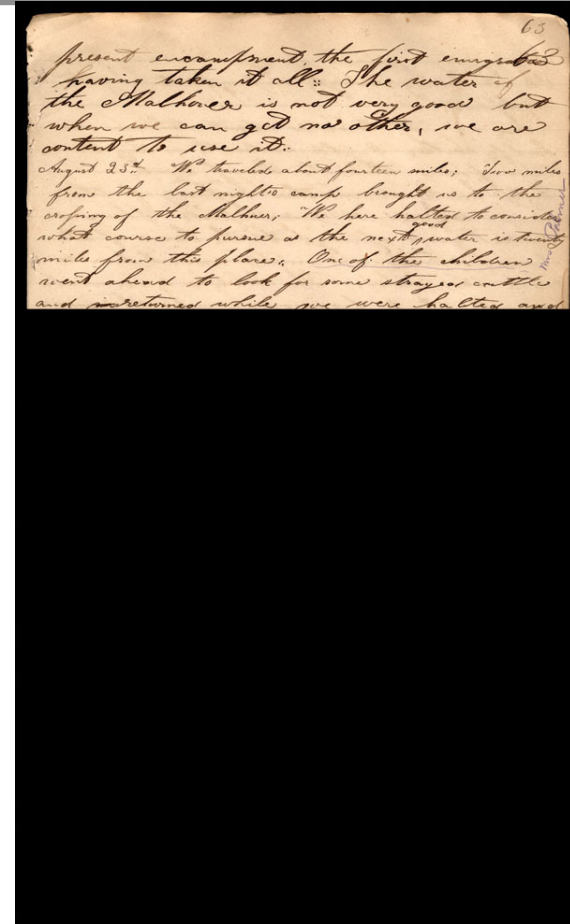 63
present encampment, the first emigrants 63
having taken it all:: The water of
the Malhuer is not very good but
when we can get no other, we are
content to use it::
August 23d:: We traveled about fourteen miles; Two miles
from the last night's camp brought us to the
crossing of the Malhuer; We here halted to consider
good
what course to pursue as the next water is twenty
miles from this place:: One of the children
went ahead to look for some strayed cattle
and returned while we were halted and